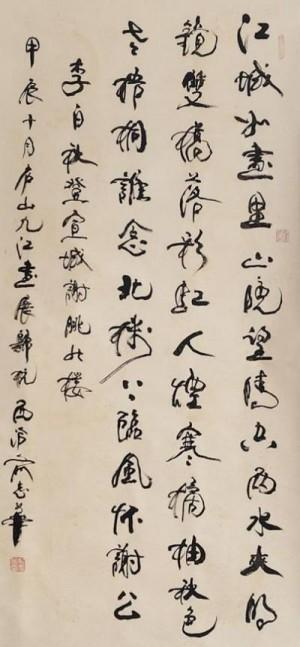 江城如画里山晓望晴空两水夹明
镜双桥落彩虹人烟寒橘柚秋色
老梧桐谁念北楼上临风怀谢公
李白秋登宣城谢朓北楼
甲辰十月庐山九江画展归杭